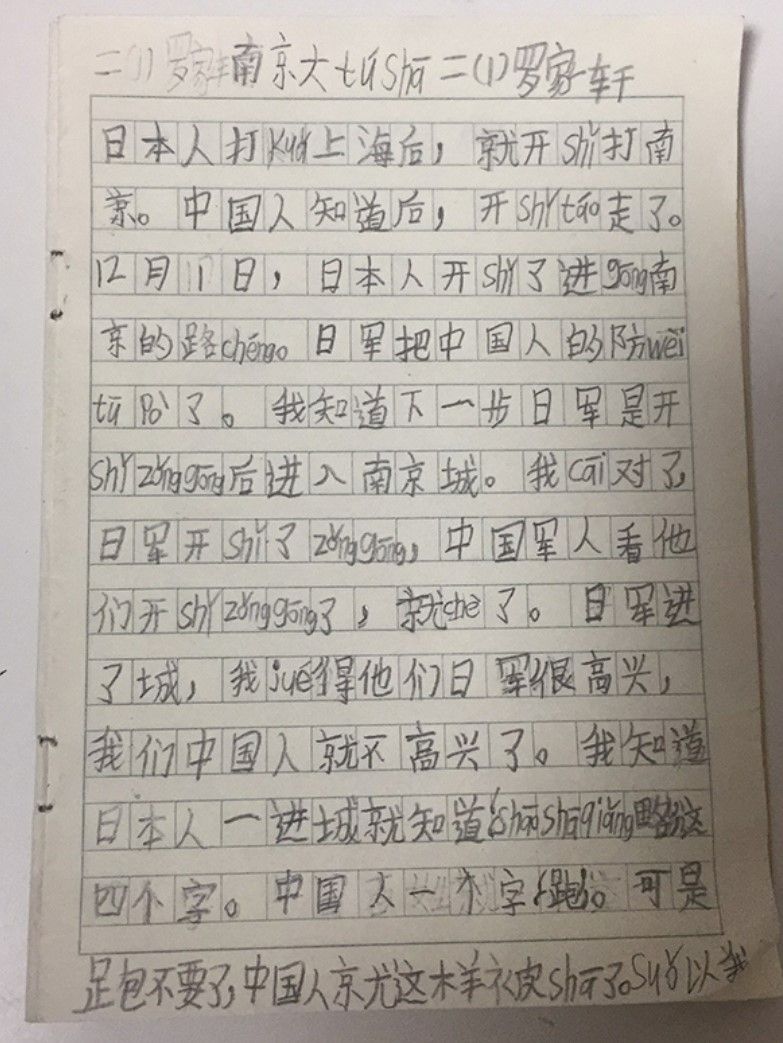 二(1)罗家轩南京大tú shā二(1)罗家轩
日本人打kuǎ上海后，就开shǐ打南
京。中国人知道后，开shǐ táo走了。
12月1日，日本人开shǐ了进gōng南
京的路chéng。日军把中国人的防wèi
tū pò了。我知道下一步日军是开
shǐ zǒng gōng后进入南京城。我cāi对了，
日军开shǐ了zǒng gōng，中国军人看他
们开shǐ zǒng gōng了，就chè了。日军进
了城，我jué得他们日军很高兴，
我们中国人就不高兴了。我知道
日本人一进城就知道“shāo shā qiǎng 略”这
四个字。中国人一个字“跑”。可是
跑不了，中国人就这样被shā了。suǒ以我